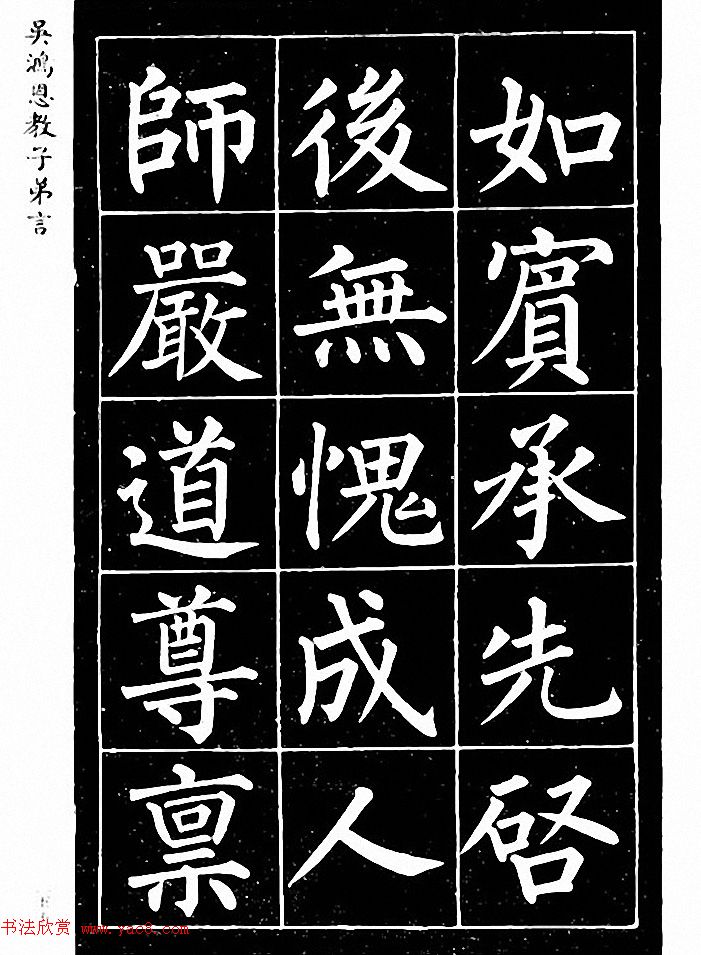 如賓承先啓
後無愧成人
師嚴道尊禀
吳鴻恩教子弟言
书法欣赏 www.yac8.com